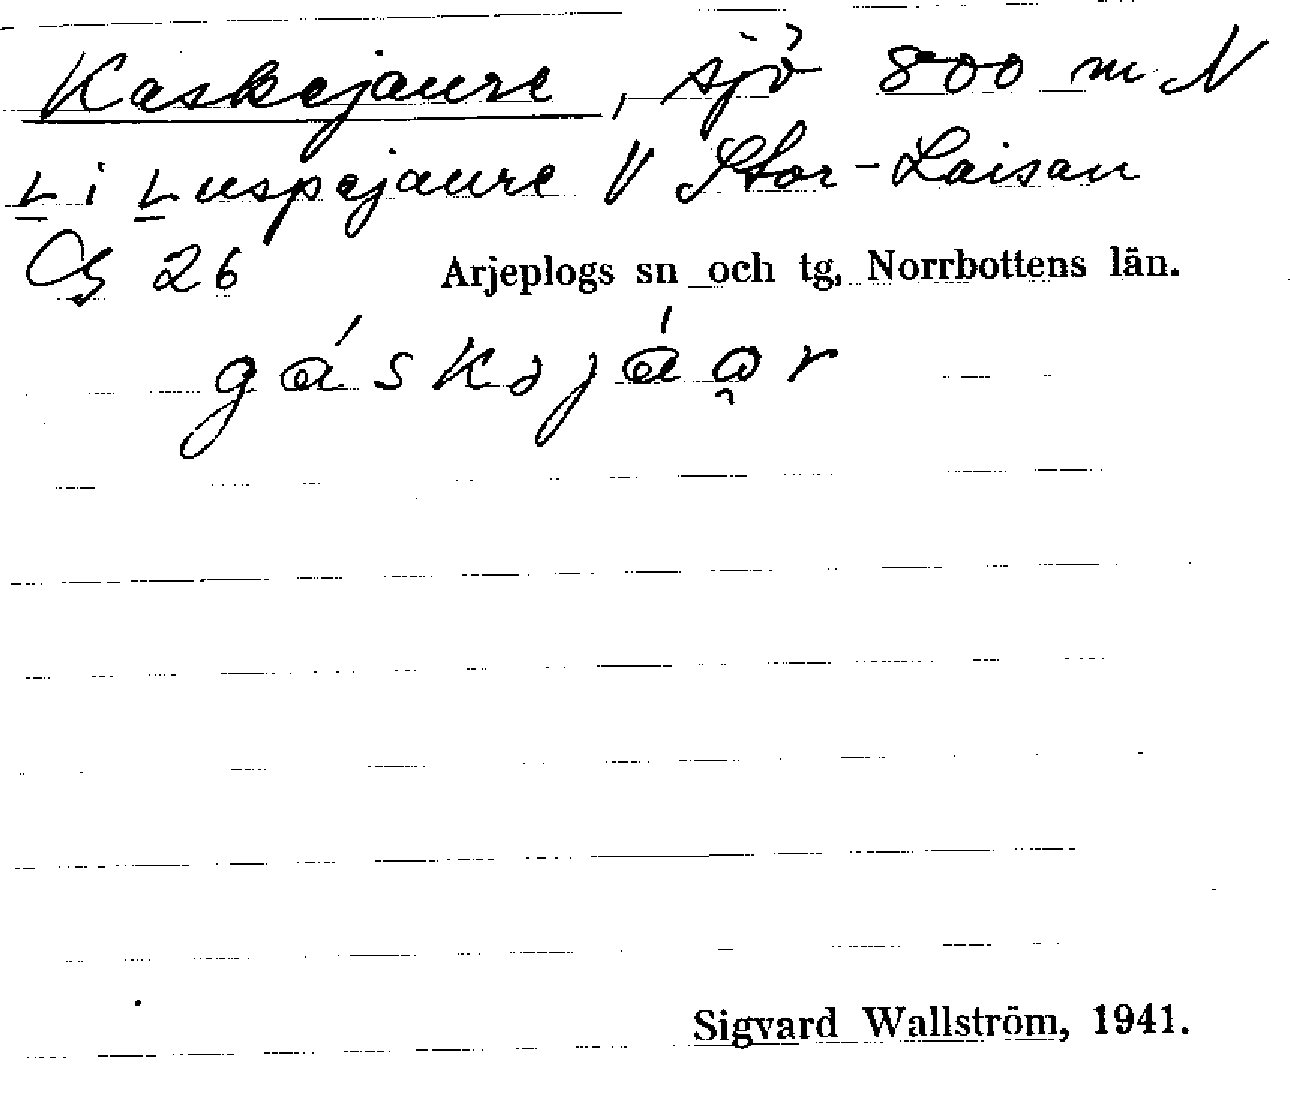 Kaskejaure, sjö 800 m N
L i Luspejaure V Stor-Laisan
26
Arjeplogs sn och tg, Norrbottens län.
gáskəjáar
Sigvard Wallström, 1941.